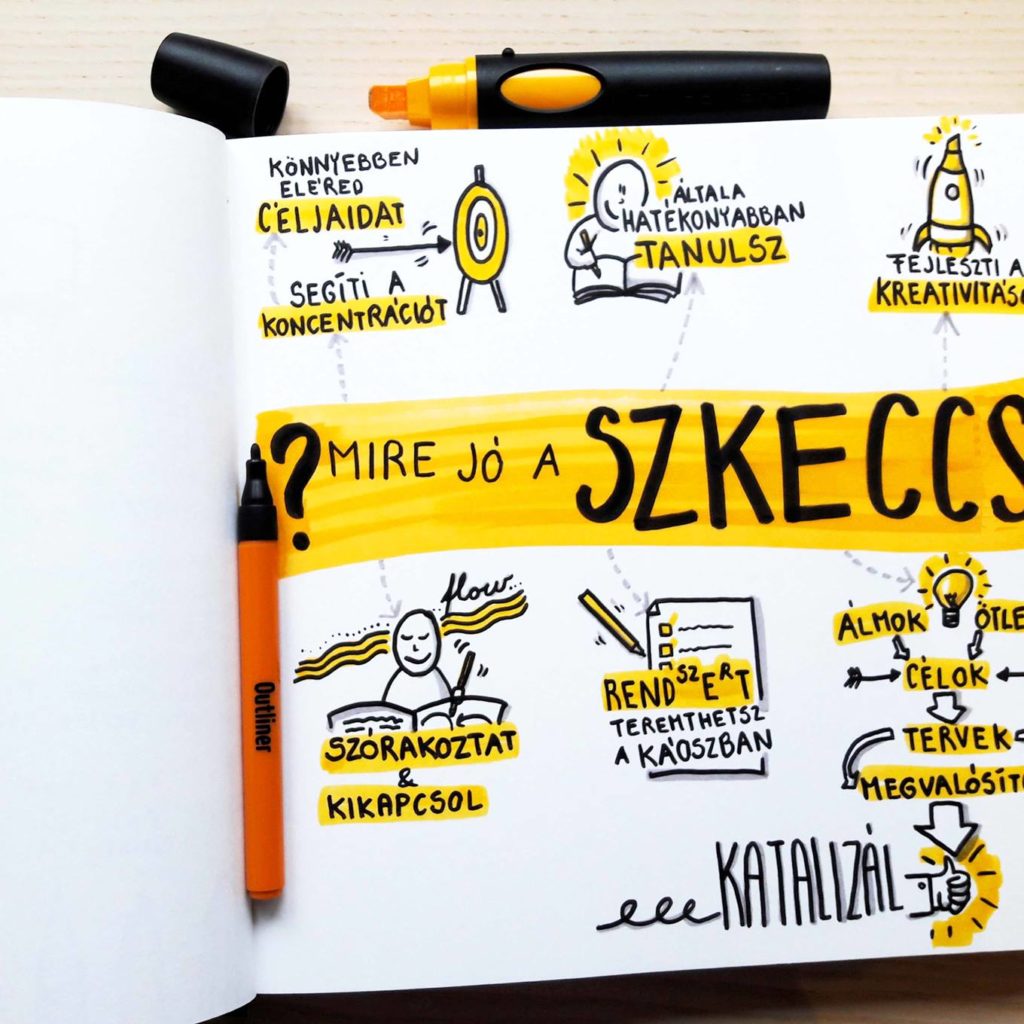 KÖNNYEBBEN
ELÉRED
CÉLJAIDAT
SEGÍTI A
KONCENTRÁCIÓT
ÁLTALA
HATÉKONYABBAN
TANULSZ
FEJLESZTI A
KREATIVITÁS
? MIRE JÓ A SZKECCS
flow
SZÓRAKOZTAT
&
KIKAPCSOL
RENDSZERT
TEREMTHETSZ
A KÁOSZBAN
ÁLMOK ÖTLE
CÉLOK
TERVEK
MEGVALÓSÍT
KATALIZÁL
Outliner